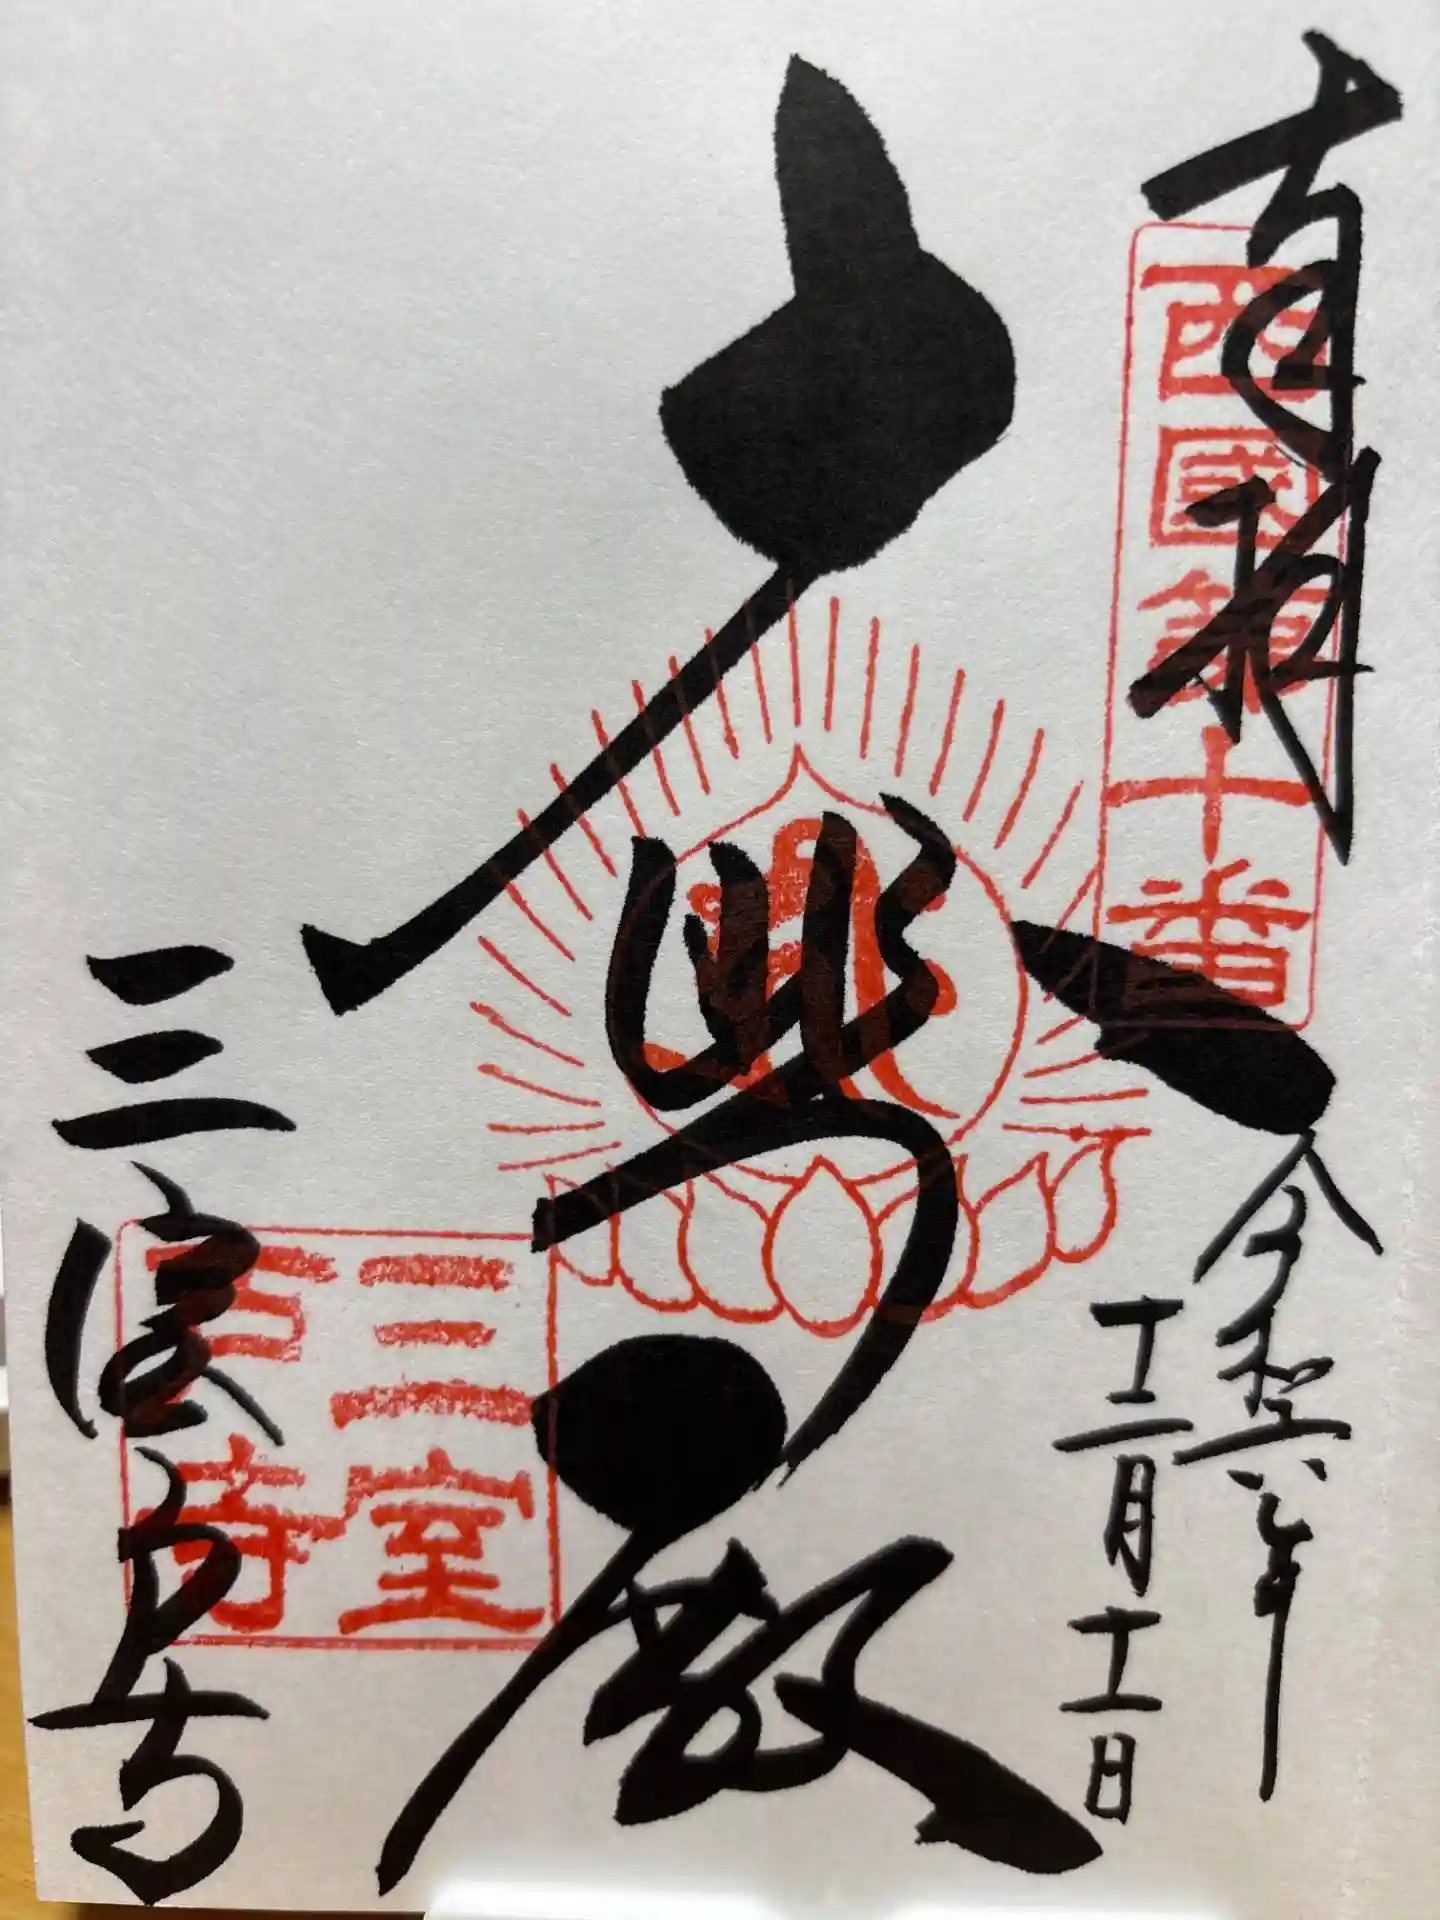 奉拝
西國第十番
令和六年
十二月十一日
大悲殿
三室
戸寺
三室戸寺